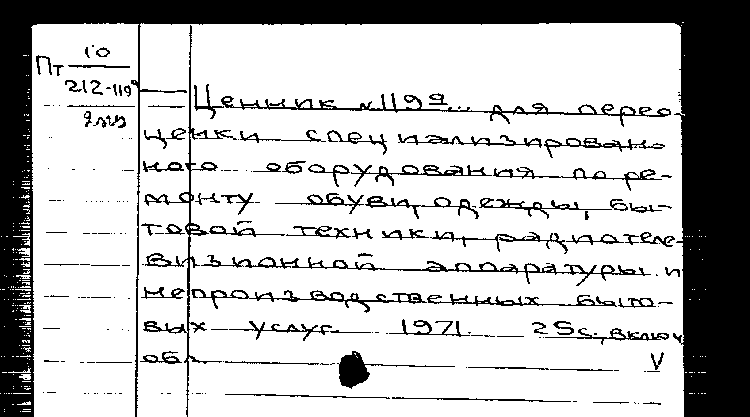 Пт 10
212-119а
Ценник №119а... для перео-
ценки специализирован-
ного оборудования по ре-
монту обуви, одежды, бы-
товой техники, радиотеле-
визионной аппаратуры и
непроизводственных быто-
вых услуг. 1971. 25с., включ.
обл. V